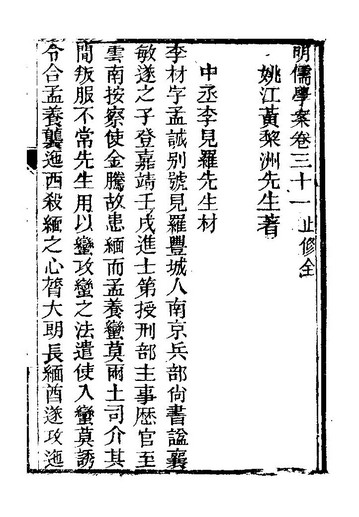 明儒學案卷三十一 止修全
姚江黃黎洲先生著
中丞李見羅先生材
李材字孟誠别號見羅豐城人南京兵部尚書謚襄
敏遂之子登嘉靖壬戌進士第授刑部主事歷官至
雲南按察使金騰故患緬而孟養蠻莫兩土司介其
間叛服不常先生用以蠻攻蠻之法遣使入蠻莫誘
令合孟養襲迤西殺緬之心膂大朗長緬酋遂攻迤